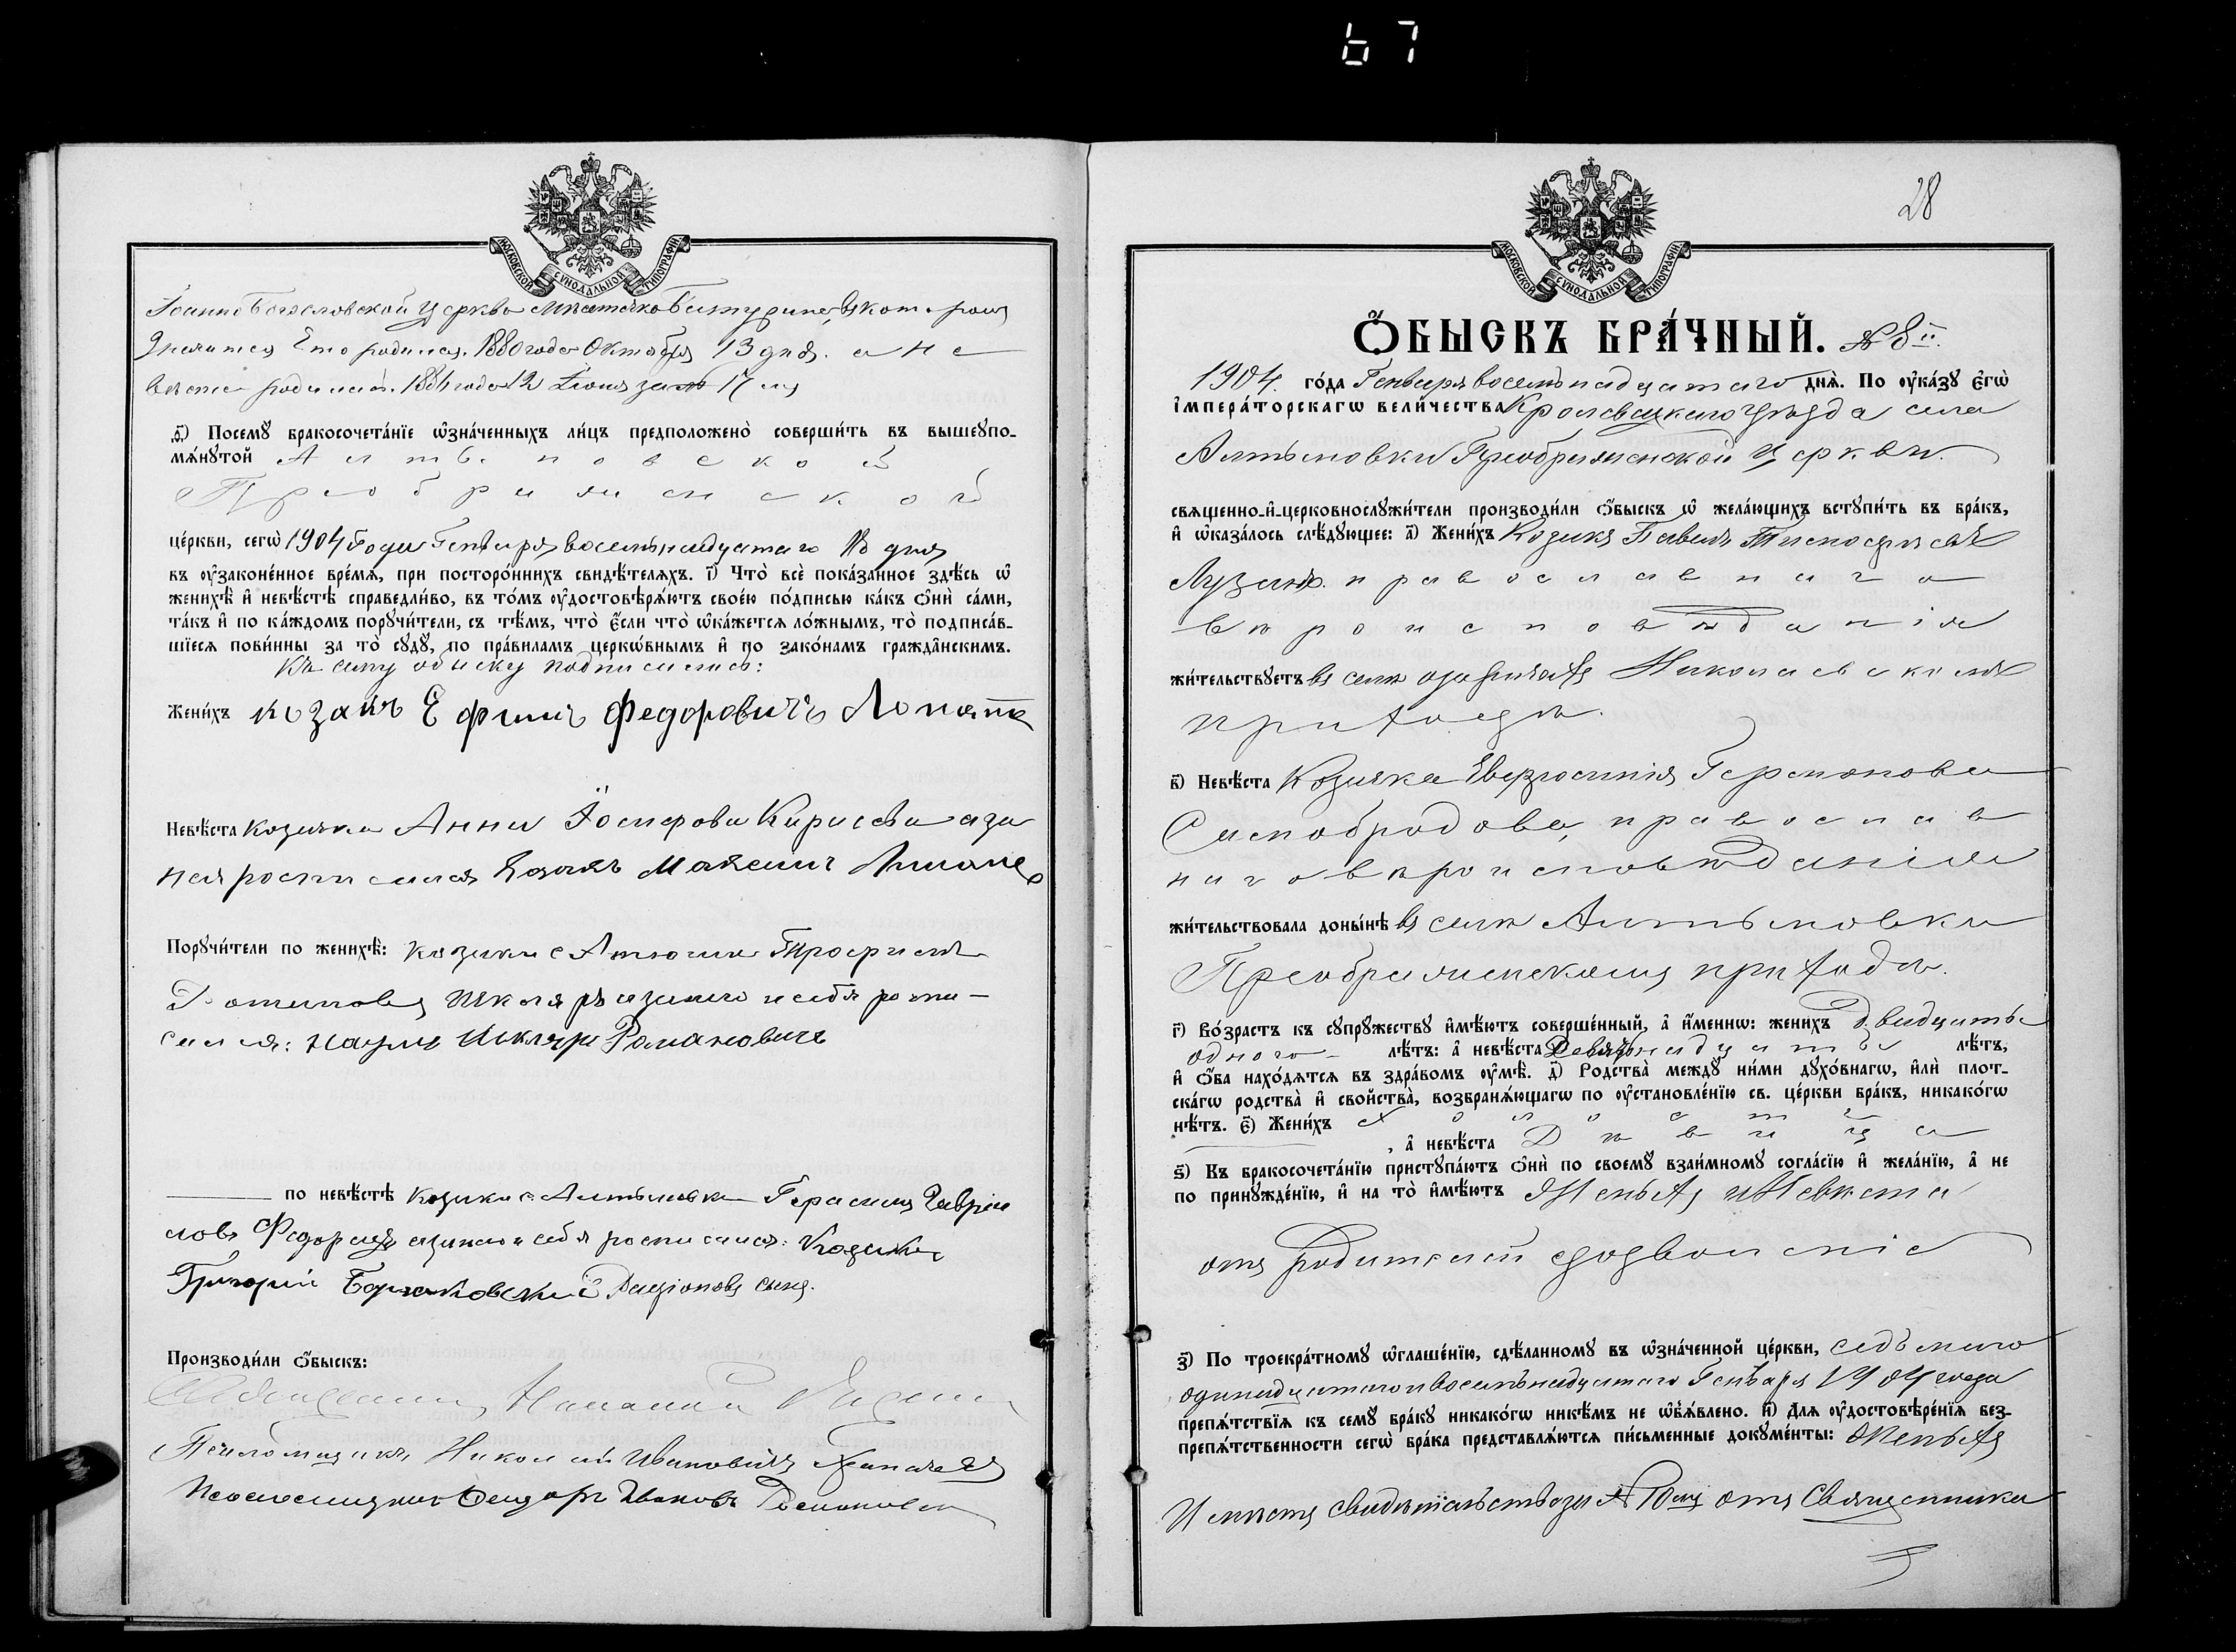 67
МОСКОВСКОЙ СѴНОДАЛЬНОЙ ТИПОГРАФІИ
Іоанно Богословской Церкви мѣстечка Батурина, въ которой
значится что родился 1880 года Октября 13 дня. а не
веста родилась 1884 года 12 Іюня за № 17 мъ
ѳ҃) Посемꙋ̀ бракосочета́нїе ѡ҆зна́ченныхъ ли́цъ предположено̀ соверши́ть въ вышеꙋпо-
мѧ́нꙋтой Алтыновской
Преображенской
це́ркви, сегѡ̀ 1904 Года Генваря восемьнадцатаго 18 дня
въ ᲂу҆законе́нное вре́мѧ, при посторо́ннихъ свидѣ́телѧхъ. і҃) Что̀ всѐ пока́занное здѣ́сь ѡ҆
женихѣ̀ и҆ невѣ́стѣ справедли́во, въ то́мъ ᲂу҆достовѣрѧ́ютъ свое́ю по́дписью ка́къ ѻ҆нѝ са́ми,
та́къ и҆ по ка́ждомъ порꙋчи́тели, съ тѣ́мъ, что̀ є҆́сли что̀ ѡ҆ка́жетсѧ ло́жнымъ, то̀ подписа́в-
шїесѧ пови́нны за то̀ сꙋдꙋ̀, по пра́виламъ церкѡ́внымъ и҆ по зако́намъ гражда̑нскимъ.
Къ сему обыску подписались:
Жени́хъ козакъ Ефимъ Федоровичъ Лопатка
Невѣ́ста Козачка Анна Іосифова Кириева а за
нея росписался Козакъ Максимъ
Порꙋчи́тели по женихѣ̀: козаки с Атюши Трофимъ
Потаповъ Шкляръ а за него и себя роспи-
сался: Наумъ Шкляръ Романовичъ
по невѣ́стѣ Козаки с Алтыновки Герасимъ Гаврiи
ловъ Федорецъ а за него и себя росписался: Козакъ
Григорій Борзаковский Родіоновъ сынъ.
Производи́ли ѻ҆́быскъ:
Священникъ
Псаломщикъ Николай Ивановичъ
Псаломщикъ Федоръ Ивановъ
28
МОСКОВСКОЙ СѴНОДАЛЬНОЙ ТИПОГРАФІИ
Ѻ҆́БЫСКЪ БРА́ЧНЫЙ. № 8й.
1904. го́да Генваря восемьнадцатаго днѧ̀. По ᲂу҆ка́зꙋ Е҆гѡ̀
И҆мпера́торскагѡ вели́чества Кролевецкаго Уѣзда села
Алтыновки Преображенской Церкви.
свѧще́нно-и҆-церковнослꙋжи́тели производи́ли ѻ҆́быскъ ѡ҆ жела́ющихъ встꙋпи́ть въ бра́къ,
и҆ ѡ҆каза́лось слѣ́дꙋющее: а҃) Жени́хъ Козакъ Павелъ Тимофеевъ
Лузанъ. православнаго
вѣроисповѣданія
жи́тельствꙋетъ въ селѣ Озаричахъ Николаевскомъ
приходѣ.
в҃) Невѣ́ста Козачка Евфросинія Германова
Самобродова, православ
наго вѣроисповѣданія
жи́тельствовала доны́нѣ въ селѣ Алтыновки
Преображенскомъ приходѣ.
г҃) Во́зрастъ къ сꙋпрꙋ́жествꙋ и҆мѣ́ютъ соверше́нный, а҆ и҆́меннѡ: жени́хъ двадцать
одного лѣ́тъ: а҆ невѣ́ста Девятнадцать лѣ́тъ,
и҆ ѻ҆́ба нахо́дѧтсѧ въ здра́вомъ ᲂу҆мѣ̀. д҃) Родства̀ междꙋ̀ ни́ми дꙋхо́внагѡ, и҆лѝ плот-
ска́гѡ родства̀ и҆ свойства̀, возбранѧ́ющагѡ по ᲂу҆становле́нїю св. це́ркви бра́къ, никако́гѡ
нѣ́тъ. є҃) Жени́хъ холостъ
, а҆ невѣ́ста Дѣвица
ѕ҃) Къ бракосочета́нїю пристꙋпа́ютъ ѻ҆нѝ по своемꙋ̀ взаи́мномꙋ согла́сїю и҆ жела́нїю, а҆ не
по принꙋжде́нїю, и҆ на то̀ и҆мѣ́ютъ Женихъ и Невѣста
отъ родителей дозволеніе
з҃) По троекра́тномꙋ ѡ҆глаше́нїю, сдѣ́ланномꙋ въ ѡ҆зна́ченной це́ркви, седьмаго
одинадцатаго и восемьнадцатаго Генваря 1904 года
препѧ́тствїѧ къ семꙋ̀ бра́кꙋ никако́гѡ никѣ́мъ не ѡ҆б̾ѧ́влено. и҃) Длѧ ᲂу҆достовѣре́нїѧ без-
препѧ́тственности сегѡ̀ бра́ка представлѧ́ютсѧ пи́сьменные докꙋме́нты: Женихъ
Имѣетъ свидѣтельство за № 10мъ отъ Священника